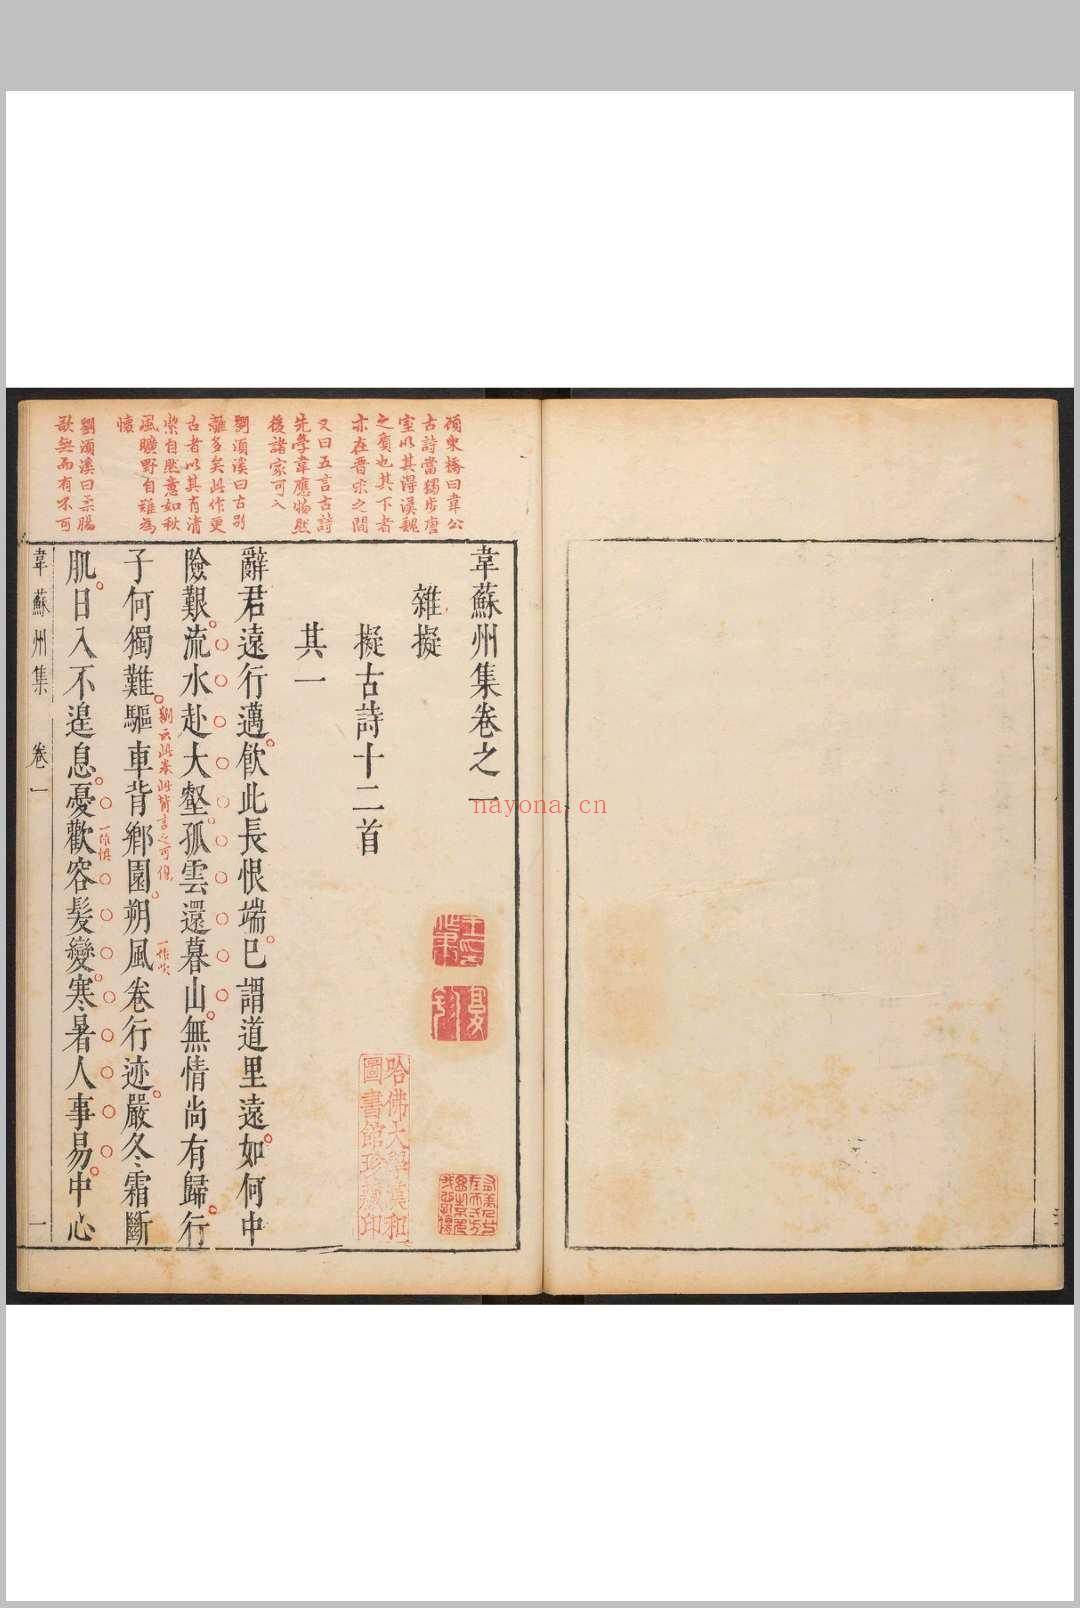 韋蘇州集卷之一
雜擬
擬古詩十二首
其一
辭君遠行邁飲此長恨端巳謂道里遠如何中
險艱流水赴大壑孤雲還暮山無情尚有歸行
子何獨難驅車背鄉園朔風卷行迹嚴冬霜斷
肌日入不遑息憂歡容髮變寒暑人事易中心
韋蘇州集 卷一 一
東橋曰韋公
古詩當獨步唐
室以其得漢魏
之質也其下者
亦在晋宋之間
又曰五言古詩
先學韋應物然
後諸家可入
劉須溪曰古別
離多矣此作更
古者以其有清
潔自然意如秋
風曠野自難為
懷
劉須溪曰柔腸
欲無而有不可
一作吹
一作懼
哈佛大學漢和
圖書館珍藏印
nayona.cn